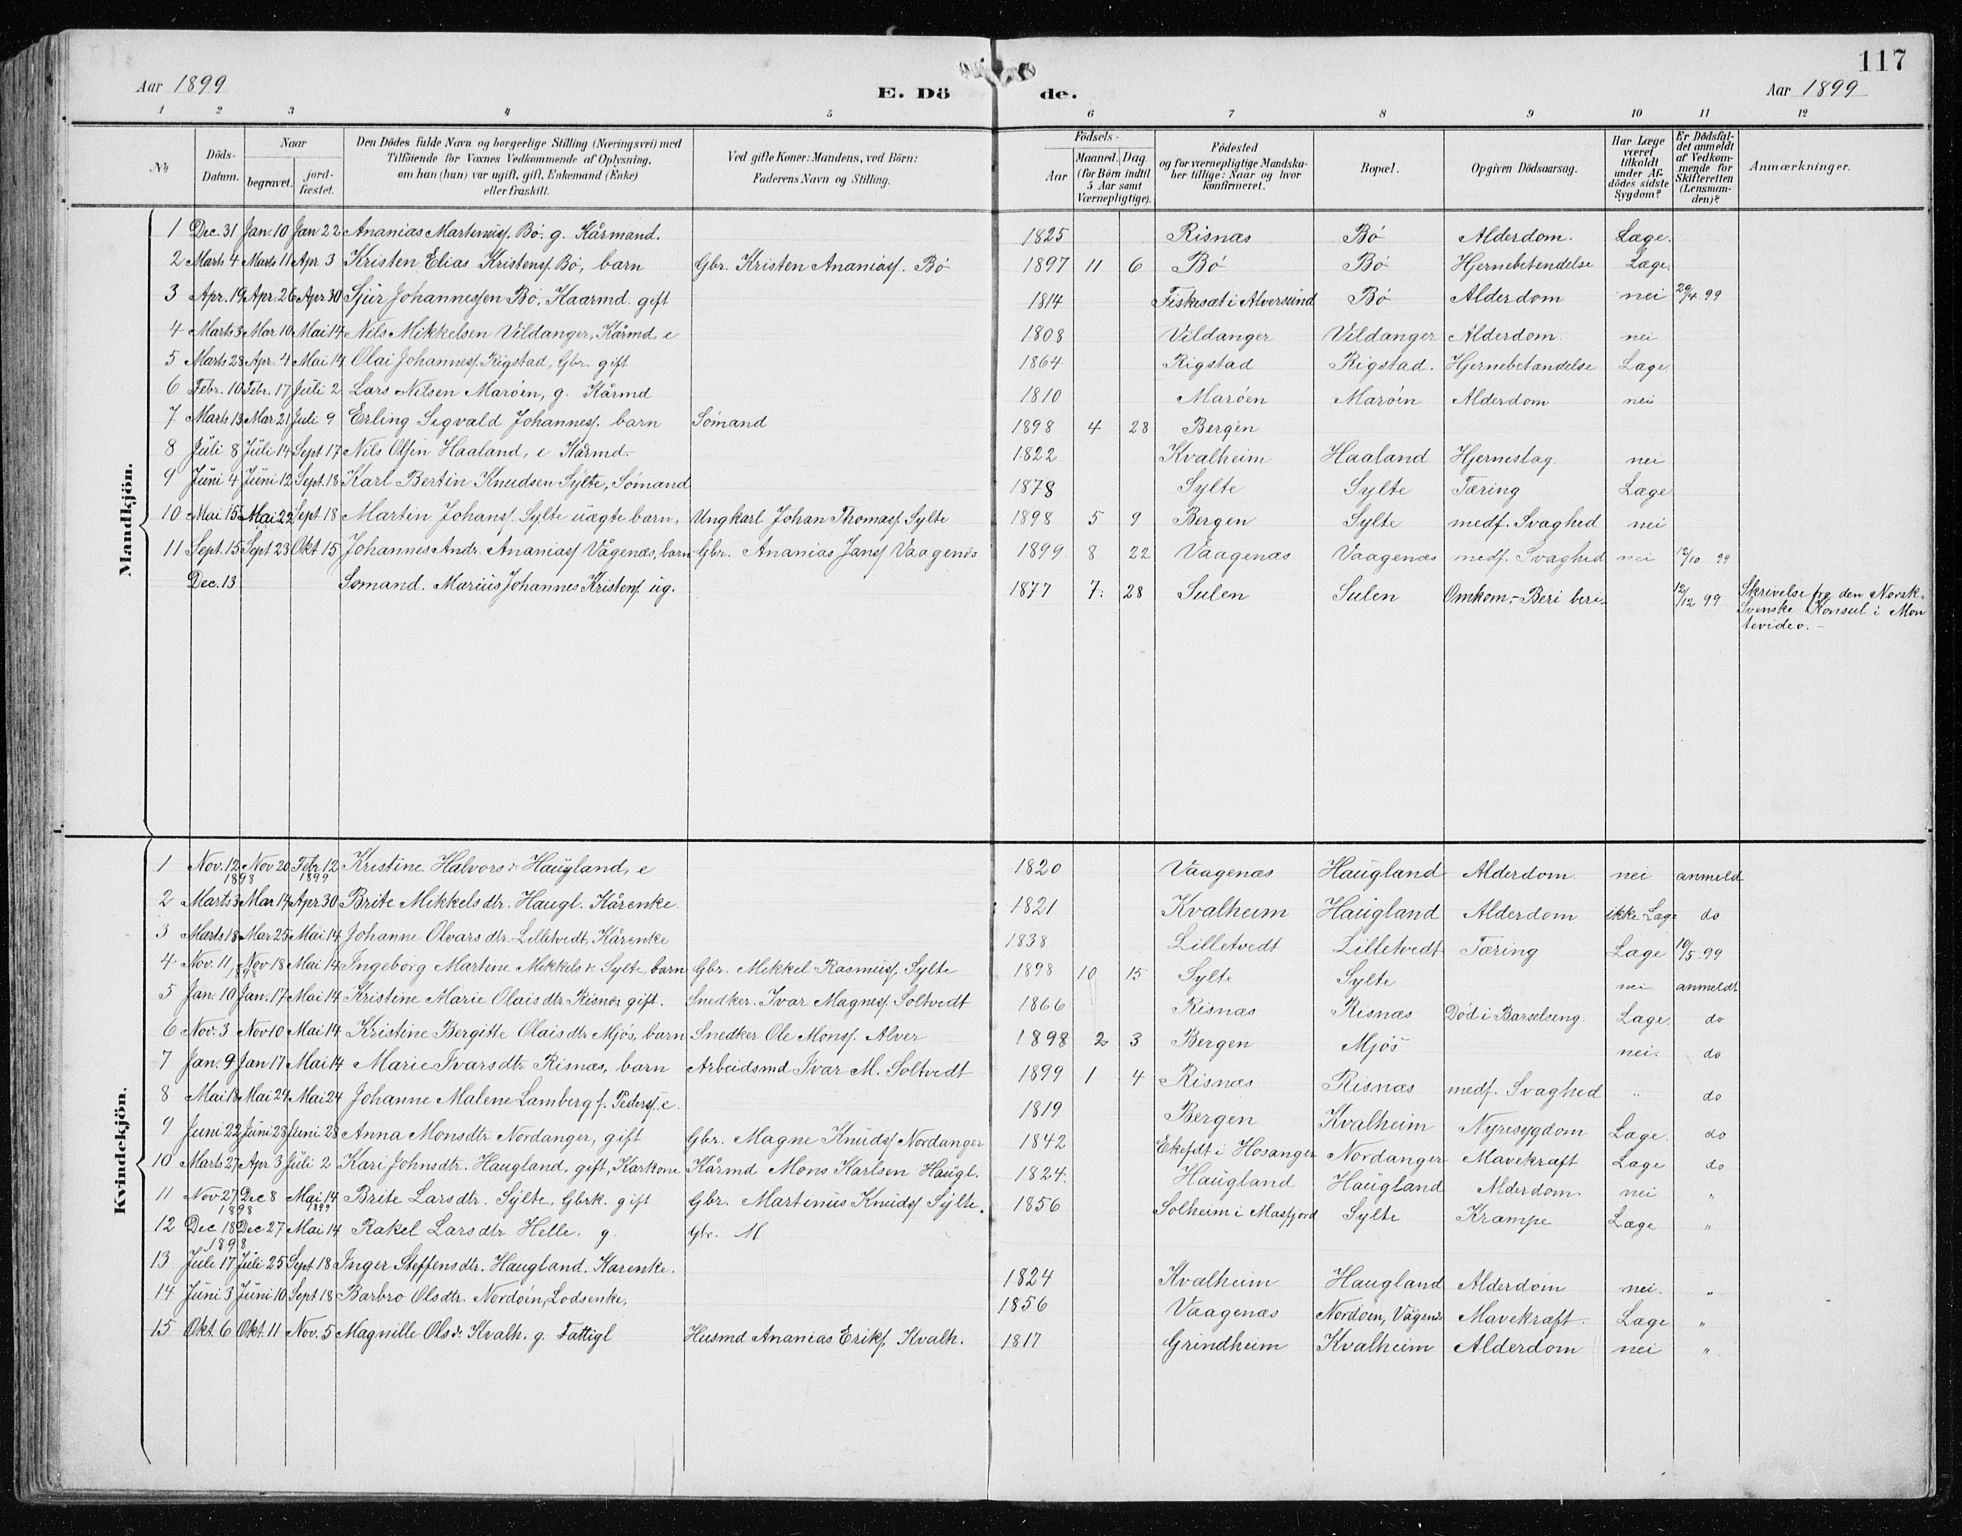 117
Aar 1899 E. Dö de. Aar 1899
1 2 3 4 5 6 7 8 9 10 11 12
No. Döds-Datum. Naar begravet. jordfæstet. Den Dödes fulde Navn og borgerlige Stilling (Næringsvei) med Tilföiende for Voxnes Vedkommende af Oplysning, om han (hun) var ugift, gift, Enkemand (Enke) eller fraskilt. Ved gifte Koner: Mandens, ved Börn: Faderens Navn og Stilling. Födsels- Aar Maaned. Dag (for Börn indtil 5 Aar samt Værnepligtige). Födested og for værnepligtige Mandskaber tillige: Naar og hvor konfirmeret. Bopæl. Opgiven Dödsaarsag. Har Læge været tilkaldt under Afdödes sidste Sygdom? Er Dödsfaldet anmeldt af Vedkommende for Skifteretten (Lensmanden)? Anmærkninger.
Mandkjön.
1 Dec. 31 Jan. 10 Jan 22 Ananias Martinusf. Bö. g. Kårmand. 1825 Risnæs Bö Alderdom. Læge.
2 Marts 4 Marts 11 Apr 3 Kristen Elias Kristensf. Bö, barn Gbr. Kristen Ananiasf. Bö 1897 11 6 Bö Bö Hjernebetendelse Læge.
3 Apr. 19 Apr. 26 Apr 30 Sjur Johannessen Bö. Kaarmd. gift 1814 Fiskesæt i Alversund Bö Alderdom nei 20/4 99
4 Marts 3 Mar 10 Mai 14 Nils Mikkelsen Vildanger, Kårmd, e 1808 Vildanger Vildanger Alderdom. nei
5 Marts 28 Apr. 4 Mai 14 Olai Johannesf. Rigstad, Gbr. gift 1864 Rigstad Rigstad. Hjernebetændelse Læge
6 Febr. 10 Febr. 17 Juli 2 Lars Nilsen Maröen, g. Kårmd 1810 Maröen Maröin Alderdom nei
7 Marts 13 Mar. 21 Juli 9 Erling Sigvald Johannesf. barn Sömand 1898 4 28 Bergen
8 Juli 8 Juli 14 Sept 17 Nils Olsen Haaland, e Kårmd. 1822 Kvalheim Haaland Hjerneslag. nei
9 Juni 4 Juni 12 Sept. 18 Karl Bertin Knudsen Sylte, Sömand 1878 Sylte Sylte Tæring Læge
10 Mai 15 Mai 22 Sept 18 Martin Johansf. Sylte uægte barn, Ungkarl Johan Thomasf Sylte 1898 5 9 Bergen Sylte medf. Svaghed nei
11 Sept. 15 Sept 23 Okt 15 Johannes Andr. Ananiasf Vågenæs, barn Gbr. Ananias Jansf Vaagenæs 1899 8 22 Vaagenæs Vaagenæs medf. Svaghed nei 12/10 99
Dec. 13 Sömand. Marius Johannes Kristensf. ug. 1877 7. 28 Sulen Sulen Omkom.- Beri beri. 12/12 99 Skrivelse fra den Norsk-
Svenske Konsul i Mon
tevideo. -
Kvindekjön.
1 Nov. 12 1898 Nov 20 Febr 12 1899 Kristine Halvorsdr Haugland, e 1820 Vaagenæs Haugland Alderdom. nei anmeld
2 Marts 3 Mar 14 Apr 30 Brite Mikkelsdtr. Haugl. Kårenke. 1821 Kvalheim Haugland Alderdom ikke Læge do
3 Marts 18 Mar 25 Mai 14 Johanne Olvarsdtr. Lilletvedt, Kårenke 1838 Lilletvedt Lilletvedt Tæring Læge 10/5 99
4 Nov. 11 Nov 18 Mai 14 Ingeborg Martine Mikkelsdr. Sylte, barn Gbr. Mikkel Rasmusf Sylte 1898 10 15 Sylte Sylte nei anmeldt
5 Jan. 10 Jan. 17 Mai 14 Kristine Marie Olaisdtr Risnæs gift. Snedker. Ivar Magnesf Soltvedt 1866 Risnæs Risnæs Död i Barselseng. Læge. do
6 Nov. 3 Nov 10 Mai 14 Kristine Bergitte Olaisdtr Mjös, barn Snedker Ole Monsf. Alver 1898 2 3 Bergen Mjös nei. do
7 Jan. 9 Jan 17 Mai 14 Marie Ivarsdtr Risnæs, barn Arbeidsmd Ivar M. Soltvedt 1899 1 4 Risnæs Risnæs medf. Svaghed " do
8 Mai 18 Mai 24 Mai 24 Johanne Malene Lamberg f. Pedersf. e. 1819 Bergen Kvalheim Nyresygdom Læge. do
9 Juni 22 Juni 28 Juni 28 Anna Monsdtr Nordanger, gift Gbr. Magne Knudsf Nordanger 1842 Ekefdt i Hosanger Nordanger Mavekræft Læge do
10 Marts 27 Apr 3 Juli 2 Kari Johnsdtr. Haugland, gift, Karkone Kårmd Mons Karlsen Haugl. 1824. Haugland Haugland Alderdom. nei "
11 Nov 27 1898 Dec 8 Mai 14 1899 Brite Larsdtr. Sylte, Gbrk. gift Gbr. Martinus Knudsf Sylte. 1856 Solheim i Masfjord Sylte Krampe Læge "
12 Dec 18 1898 Dec 27 Mai 14 Rakel Larsdtr Helle. g. Gbr. M
13 Juli 17 Juli 25 Sept 18 Inger Steffensdtr. Haugland. Karenke. 1824 Kvalheim Haugland Alderdom nei. "
14 Juni 3 Juni 10 Sept 18 Barbro Olsdtr. Nordöen, Lodsenke, 1856 Vaagenæs Nordöen, Vågenæs Mavekræft. Læge "
15 Okt. 6 Okt. 11 Nov. 5 Magnille Olsdr. Kvalh. g. Fattigl Husmd Ananias Eriksf. Kvalh. 1817 Grindheim Kvalheim Alderdom nei "